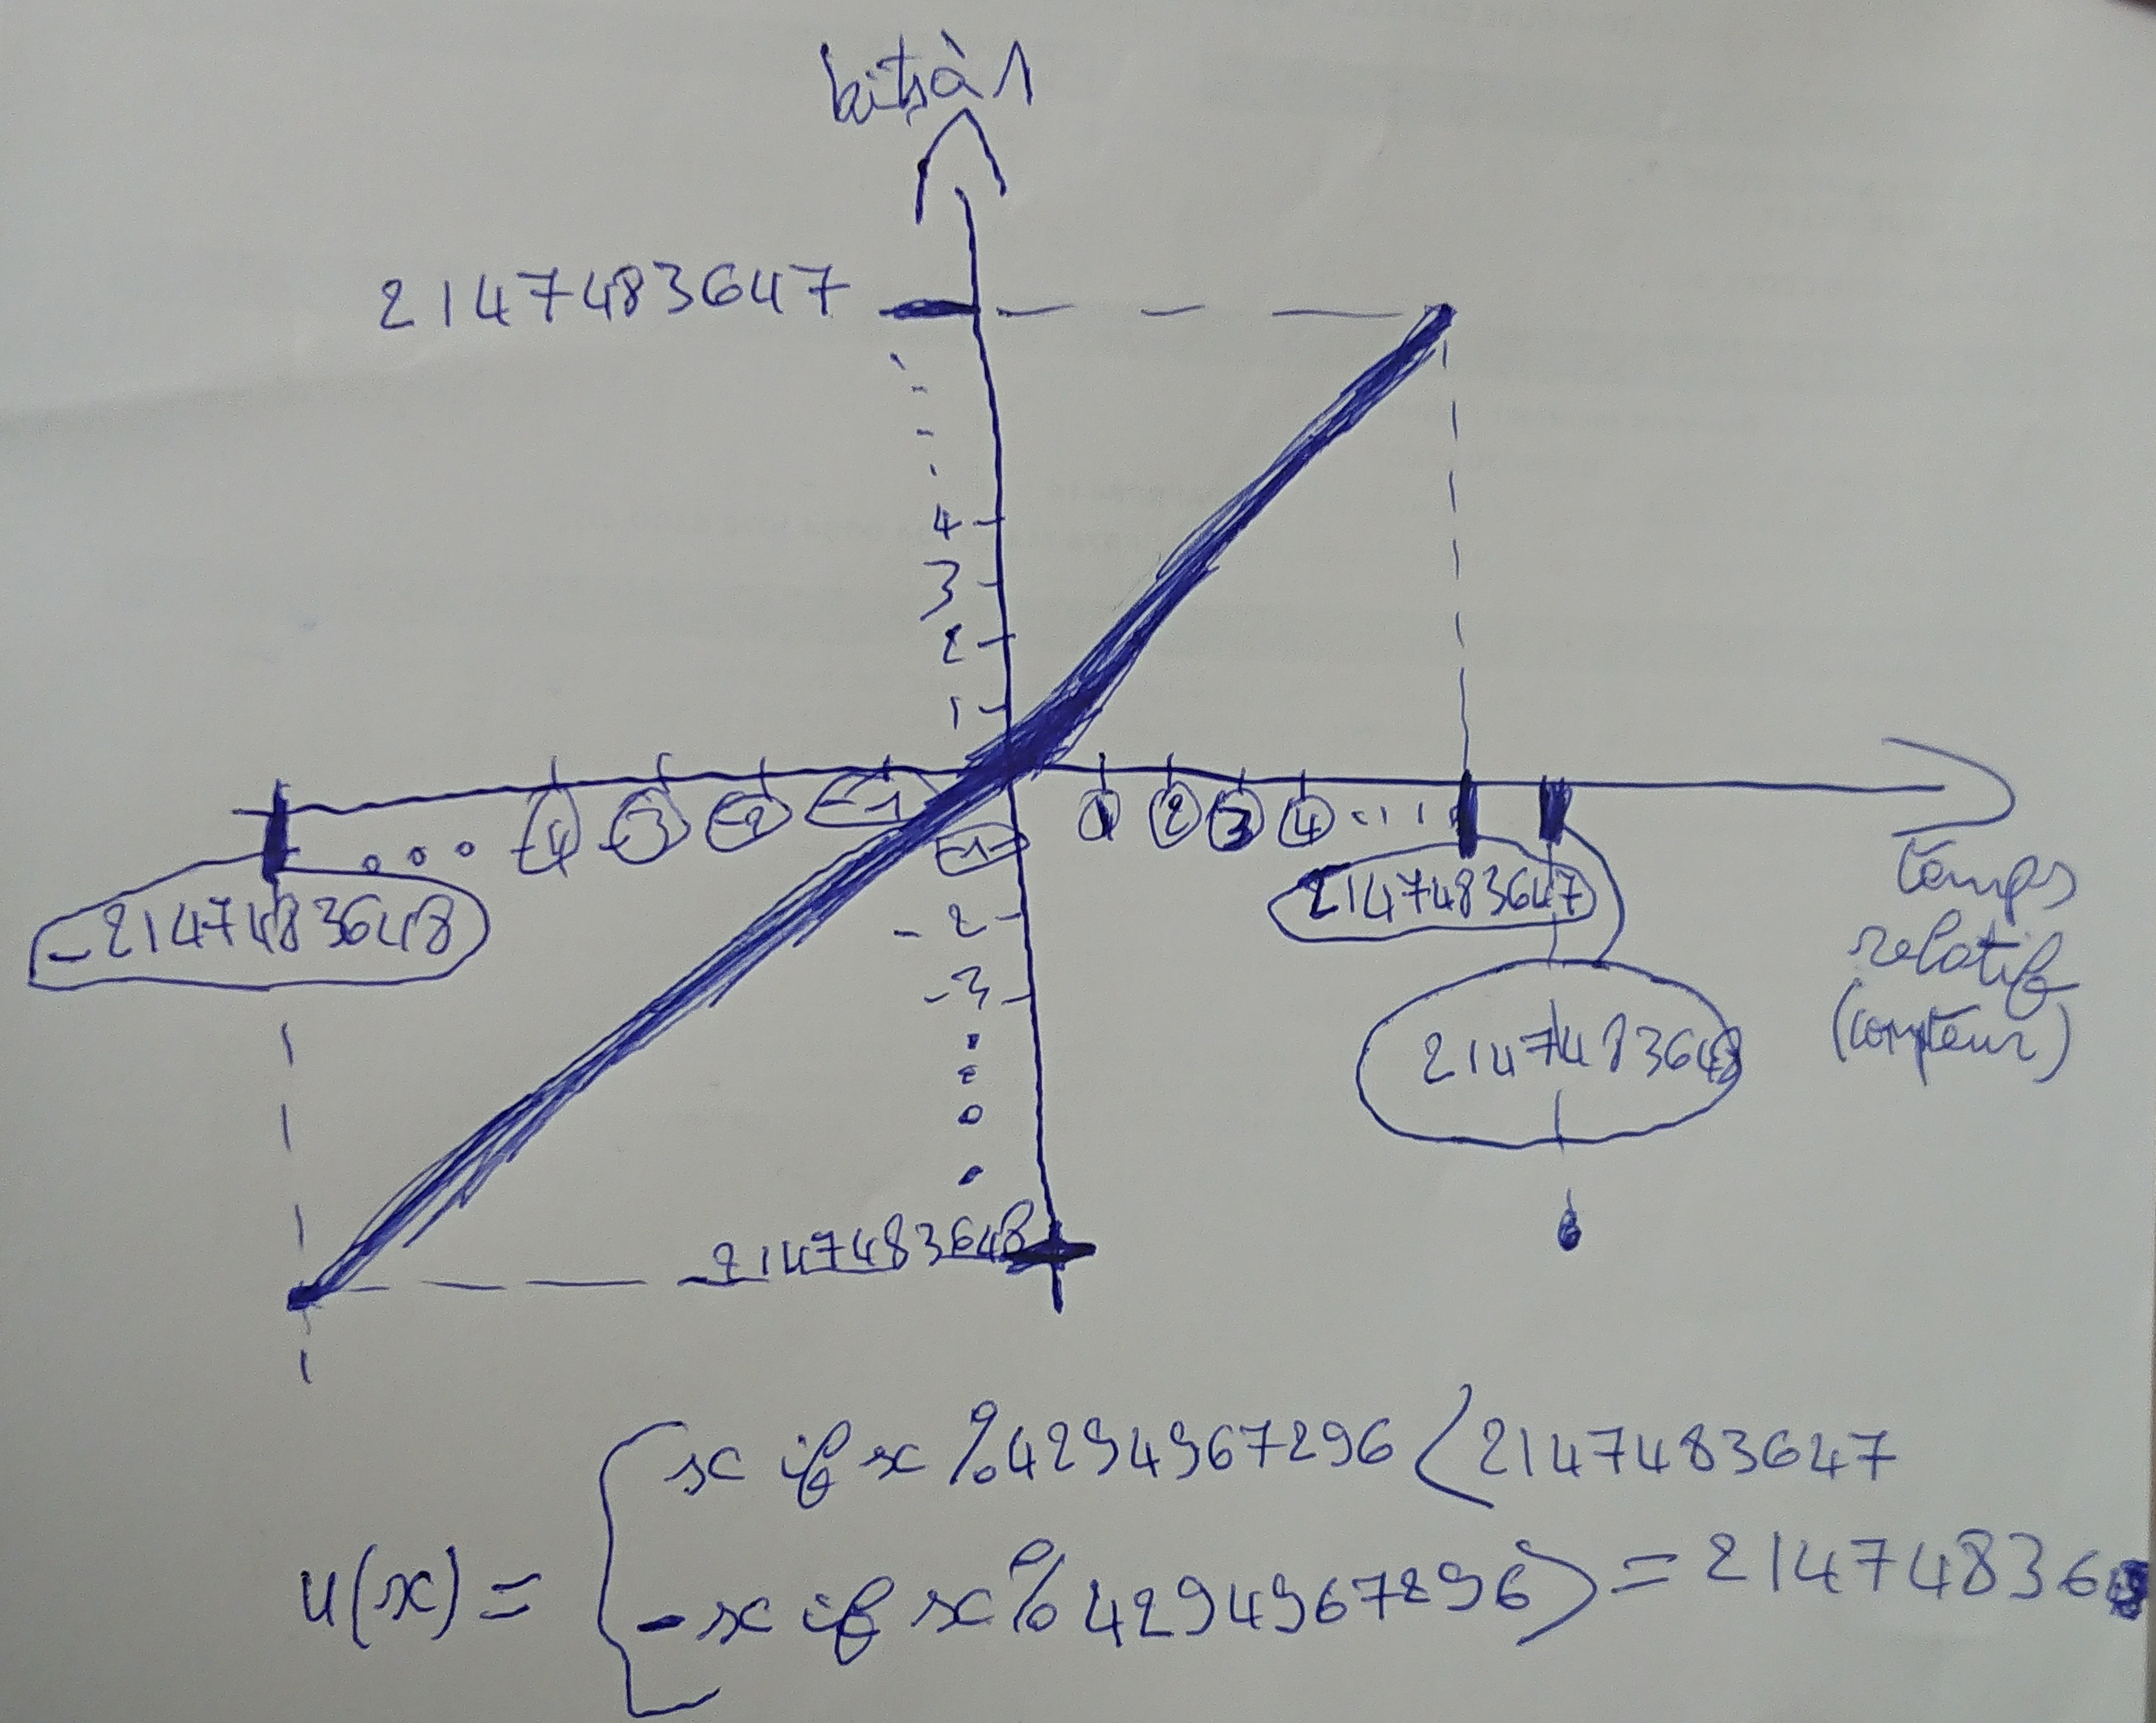 bits à 1
2147483647
4
3
2
1
-4 -3 -2 -1 1 2 3 4 ...
-1
-2147483648 2147483647
-2
-3
2147483648
temps
relatif
(compteur)
-2147483648
x if x % 4294967296 < 2147483647
u(x) =
-x if x % 4294967296 > = 21474836